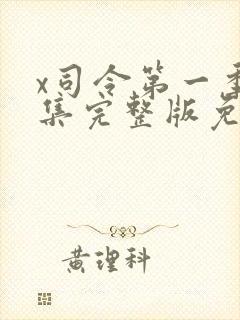 x司令第一季
集完整版免
黄理科